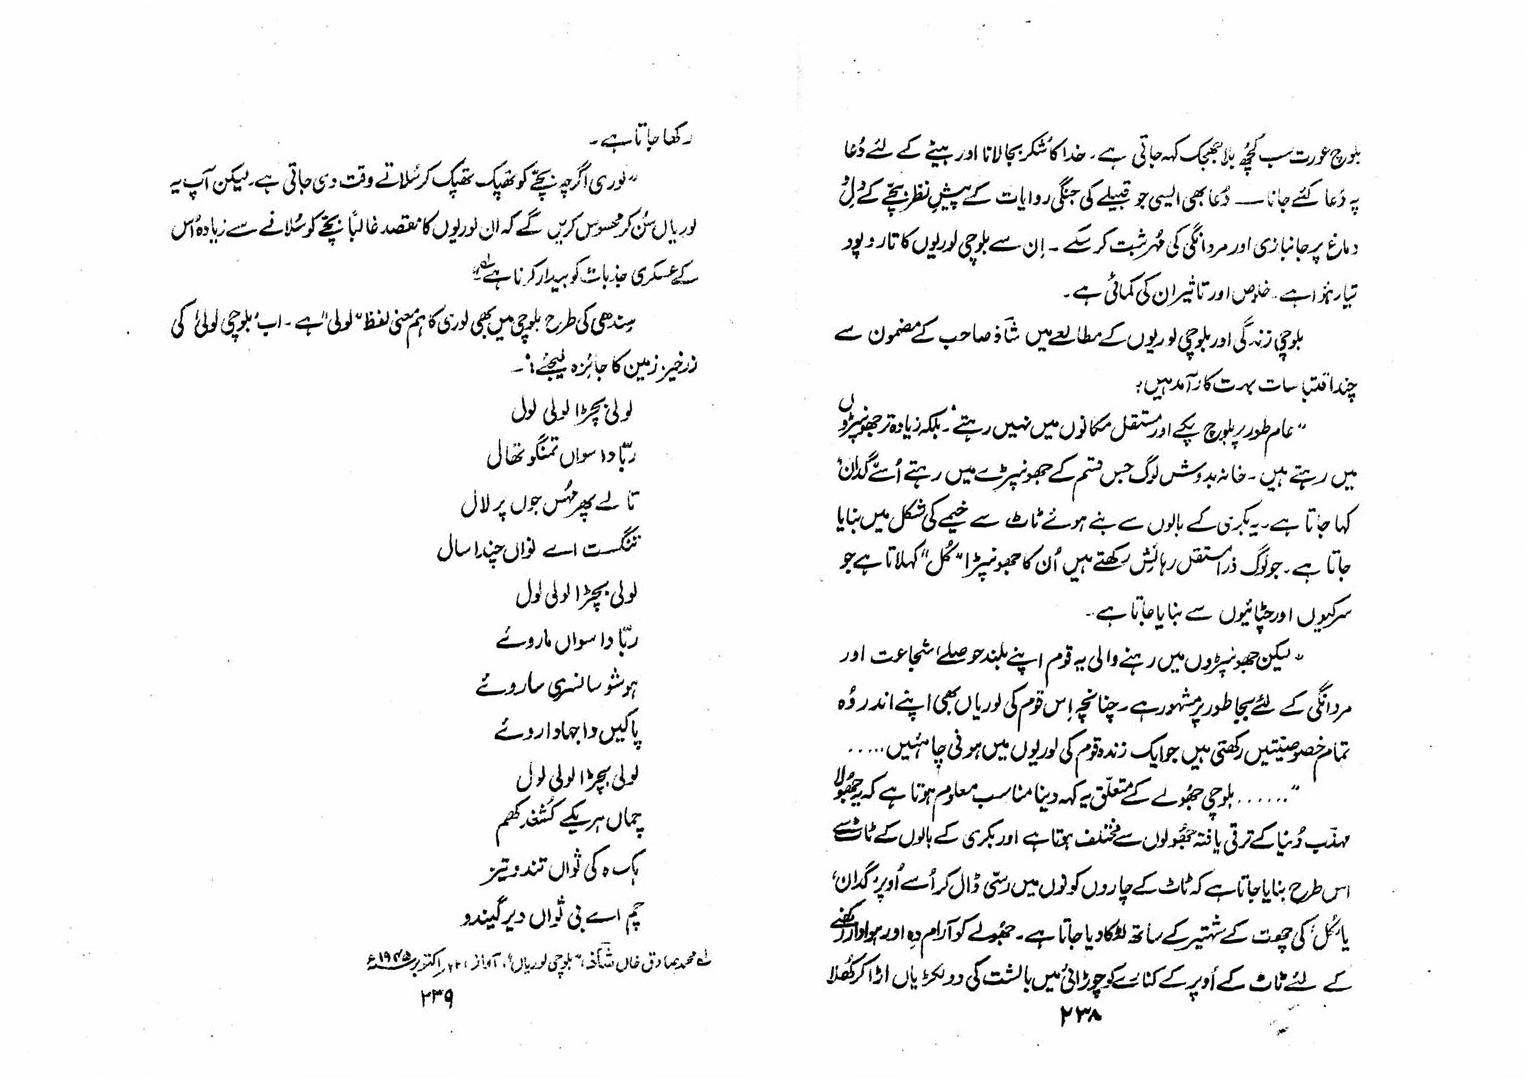 بلوچ عورت سب کچھ بلا جھجک کہہ جاتی ہے۔ خدا کا شکر بجا لانا اور بیٹے کے لئے دُعا
پہ دُعا کئے جانا ــــ دُعا بھی ایسی جو قبیلے کی جنگی روایات کے پیشِ نظر بچّے کے دِل و
دماغ پر جانبازی اور مردانگی کی مُہر ثبت کر سکے۔ اِن سے بلوچی لوریوں کا تار و پود
تیار ہُوا ہے۔ خلوص اور تاثیر ان کی کمائی ہے۔
بلوچی زندگی اور بلوچی لوریوں کے مطالعے میں شاذ صاحب کے مضمون سے
چند اقتباسات بہت کارآمد ہیں:
"عام طور پر بلوچ پکّے اور مستقل مکانوں میں نہیں رہتے۔ بلکہ زیادہ تر جھونپڑوں
میں رہتے ہیں۔ خانہ بدوش لوگ جس قسم کے جھونپڑے میں رہتے اُسے 'گدان'
کہا جاتا ہے۔ یہ بکری کے بالوں سے بنے ہوئے ٹاٹ سے خیمے کی شکل میں بنایا
جاتا ہے۔ جو لوگ ذرا مستقل رہائش رکھتے ہیں اُن کا جھونپڑا "کُل" کہلاتا ہے جو
سرکیوں اور چٹائیوں سے بنایا جاتا ہے۔
"لیکن جھونپڑوں میں رہنے والی یہ قوم اپنے بلند حوصلے، شجاعت اور
مردانگی کے لئے بجا طور پر مشہور ہے۔ چنانچہ اِس قوم کی لوریاں بھی اپنے اندر وُہ
تمام خصوصیّتیں رکھتی ہیں جو ایک زندہ قوم کی لوریوں میں ہونی چاہئیں.....
"...... بلوچی جھُولے کے متعلق یہ کہہ دینا مناسب معلوم ہوتا ہے کہ یہ جھُولا
مہذّب دُنیا کے ترقی یافتہ جھُولوں سے مختلف ہوتا ہے اور بکری کے بالوں کے ٹاٹ سے
اس طرح بنایا جاتا ہے کہ ٹاٹ کے چاروں کونوں میں رسّی ڈال کر اُسے اُوپر 'گدان'
یا 'کُل' کی چھت کے شہتیر کے ساتھ لٹکا دیا جاتا ہے۔ جھُولے کو آرام دہ اور ہوادار رکھنے
کے لئے ٹاٹ کے اُوپر کے کنارے کو چوڑائی میں بالشت کی دو لکڑیاں اڑا کر کھُلا
۲۳۸
رکھا جاتا ہے۔
"لوری اگرچہ بچّے کو تھپک تھپک کر سُلاتے وقت دی جاتی ہے۔ لیکن آپ یہ
لوریاں سُن کر محسوس کریں گے کہ ان لوریوں کا مقصد غالباً بچّے کو سُلانے سے زیادہ اُس
کے عسکری جذبات کو بیدار کرنا ہے"۔
سِندھی کی طرح بلوچی میں بھی لوری کا ہم معنی لفظ "لولی" ہے۔ اب 'بلوچی لولی' کی
زرخیز زمین کا جائزہ لیجئے:۔
لولی بچڑا لولی لول
ربّا دا سواں تمنگو تھالی
تا لے پھر مُہس جوں پر لالی
تنگست اے نواں چندا سال
لولی بچڑا لولی لول
ربّا دا سواں ماروئے
ہوشو سانسری ساروئے
پاکیں دا جہاداروئے
لولی بچڑا لولی لول
چماں ہریکے کُشغد کھم
ہک ہ کی ثواں تند و تیز
چم اے نی ثواں دیر گیندو
لے محمد صادق خاں شاذ، "بلوچی لوریاں"، آواز، ۲۲ اکتوبر ۱۹۴۵ء
۲۳۹